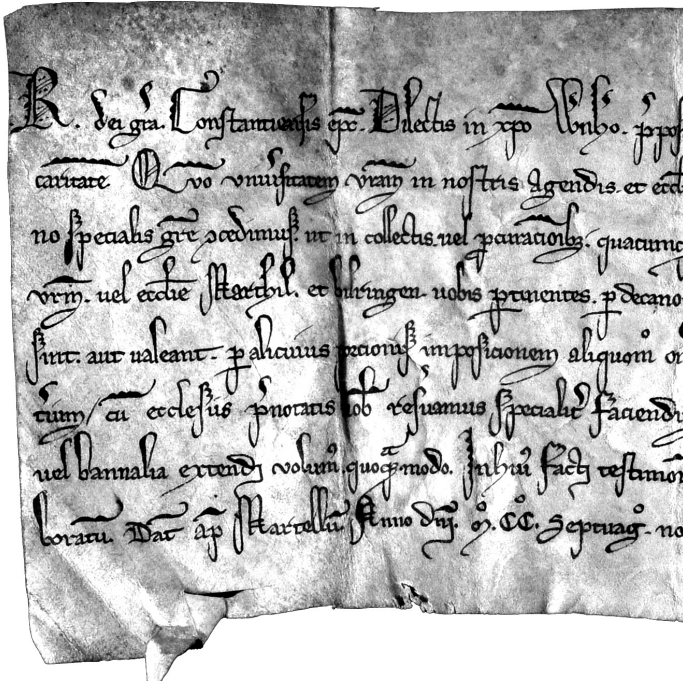 R. dei gra. Constantiensis epc. Dilectis in xpo
caritate Quo vniuersitatem vram in nostris Agendis. et
no specialis gre ɔcedimus. ut in collectis. uel
vrm. uel ecclie Marchil. et uobis ptinentes. p decano
Sint. aut ualeant. p alicuius imposicionem aliquom
cum ecclesiis pnotatis nob resuamus specialit faciend
uel bannalia extendi volum. quoqmodo. In huiᷤ facti testimon
boratu. Dat ap Martellu Anno dni. mo. CCo. Septuago. no